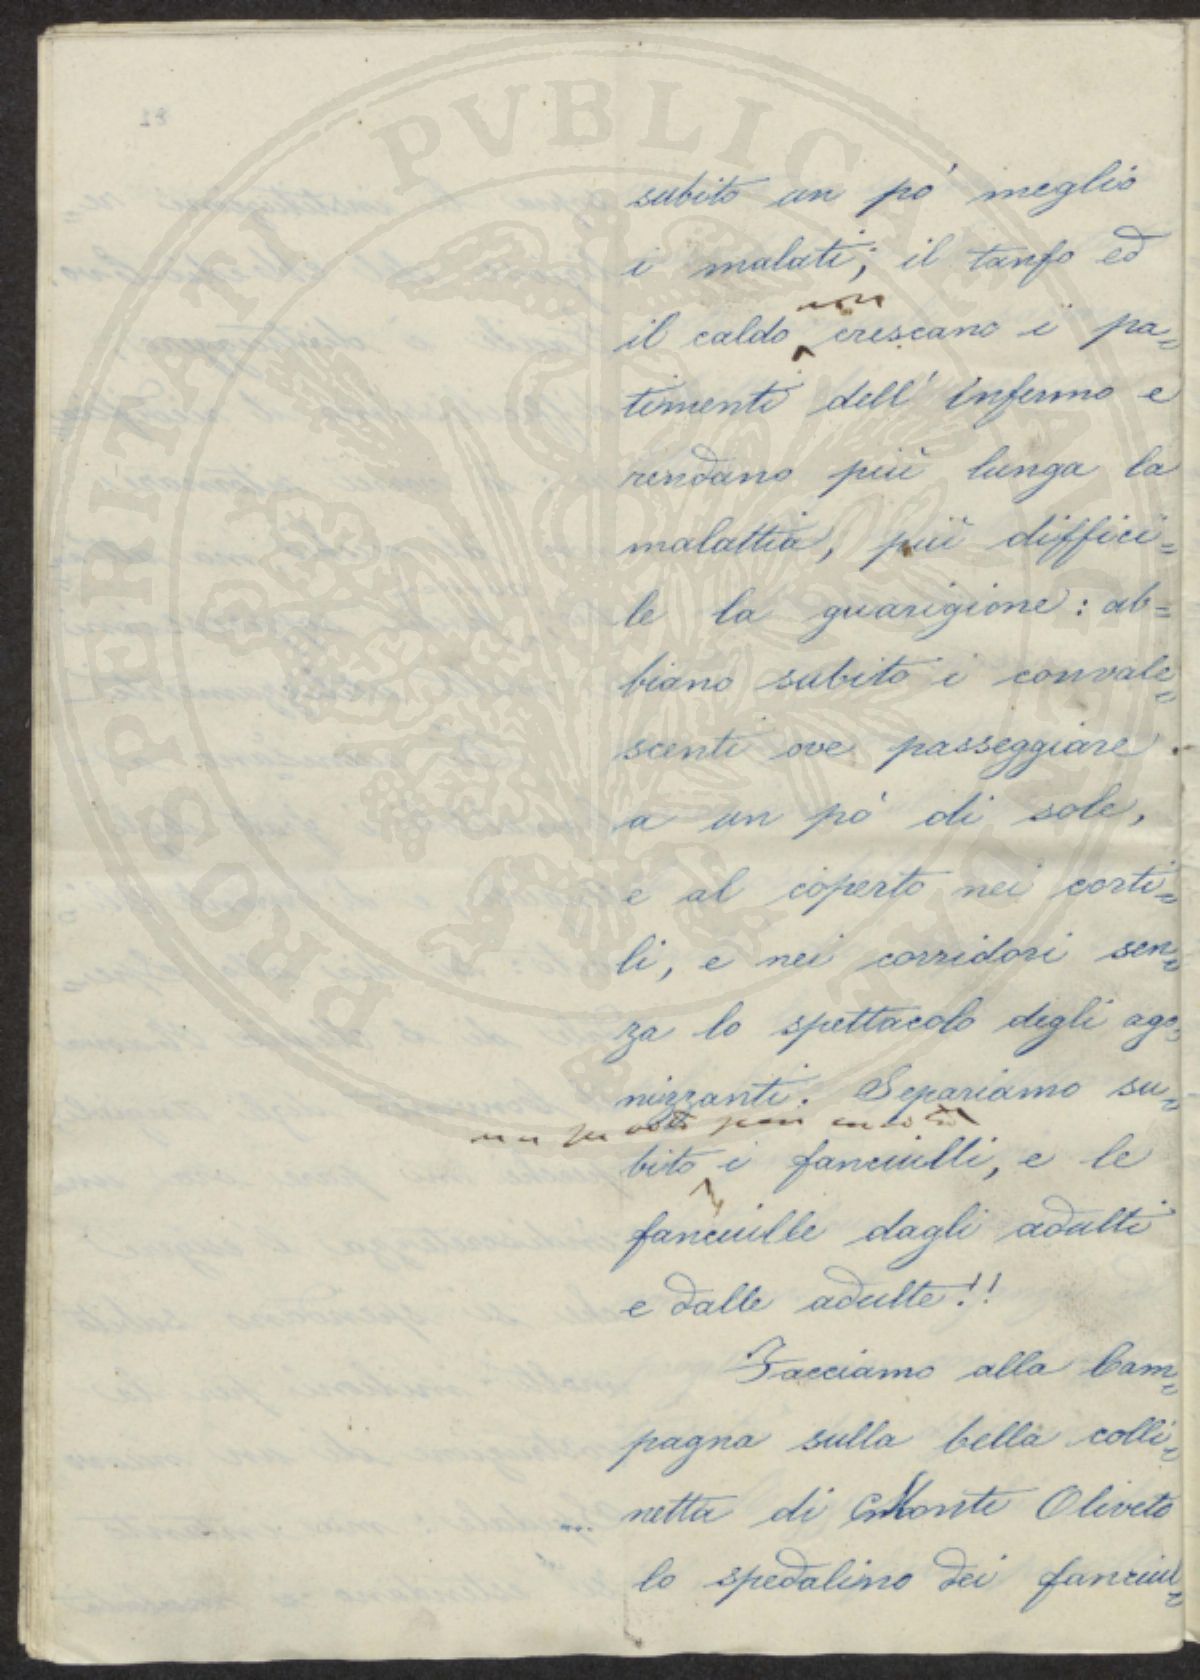 subito un pò meglio
i malati; il tanfo ed
non
il caldo crescano i pa=
timenti dell' infermo e
rendano più lunga la
malattia, più diffici=
le la guarigione: ab=
biano subito i convale=
scenti ove passeggiare
a un pò di sole,
e al coperto nei corti=
li, e nei corridori sen=
za lo spettacolo degli ago=
nizzanti. Separiamo su=
bito i fanciulli, e le
fanciulle dagli adulti
e dalle adulte!!
Facciamo alla Cam=
pagna sulla bella colli=
netta di Monte Oliveto
lo spedalino dei fanciul=